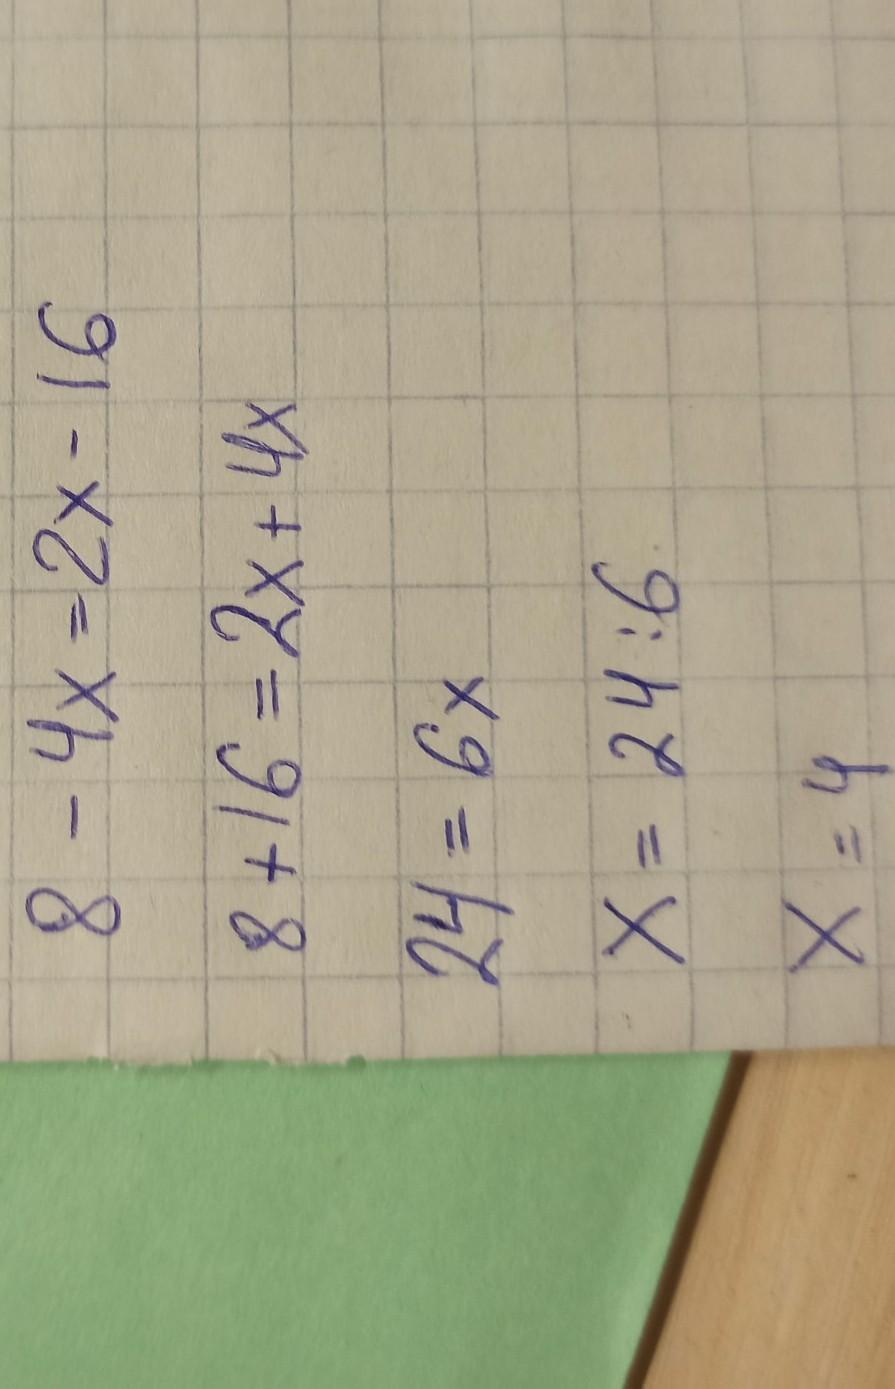 8 - 4x = 2x - 16
8 + 16 = 2x + 4x
24 = 6x
x = 24 : 6
x = 4